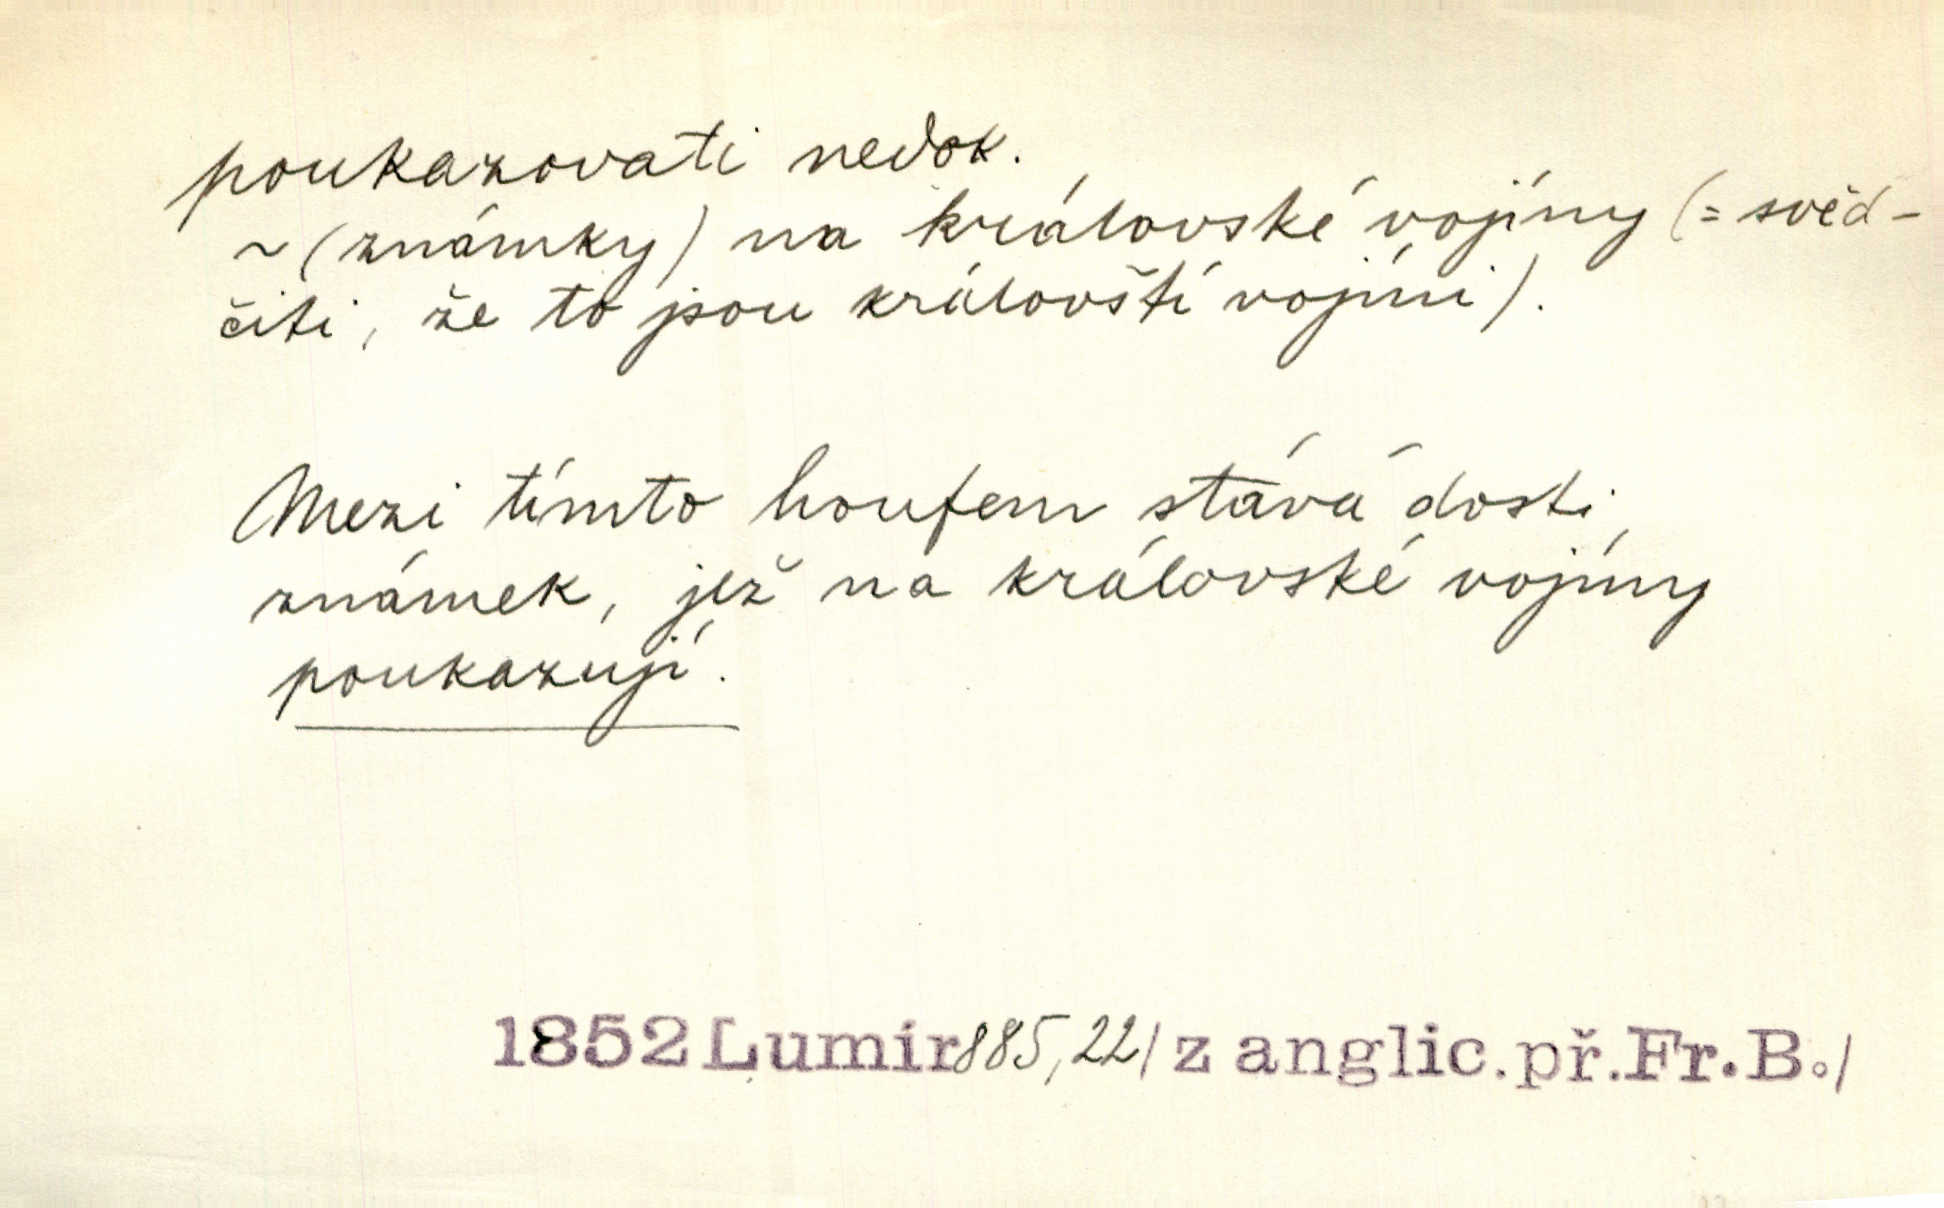 poukazovati nedok.
~ (známky) na královské vojíny (= svěd-
čiti, že to jsou královští vojíni).
Mezi tímto houfem stává dosti
známek, jež na královské vojíny
poukazují.
1852 Lumír 885,22/ z anglic. př. Fr. B./